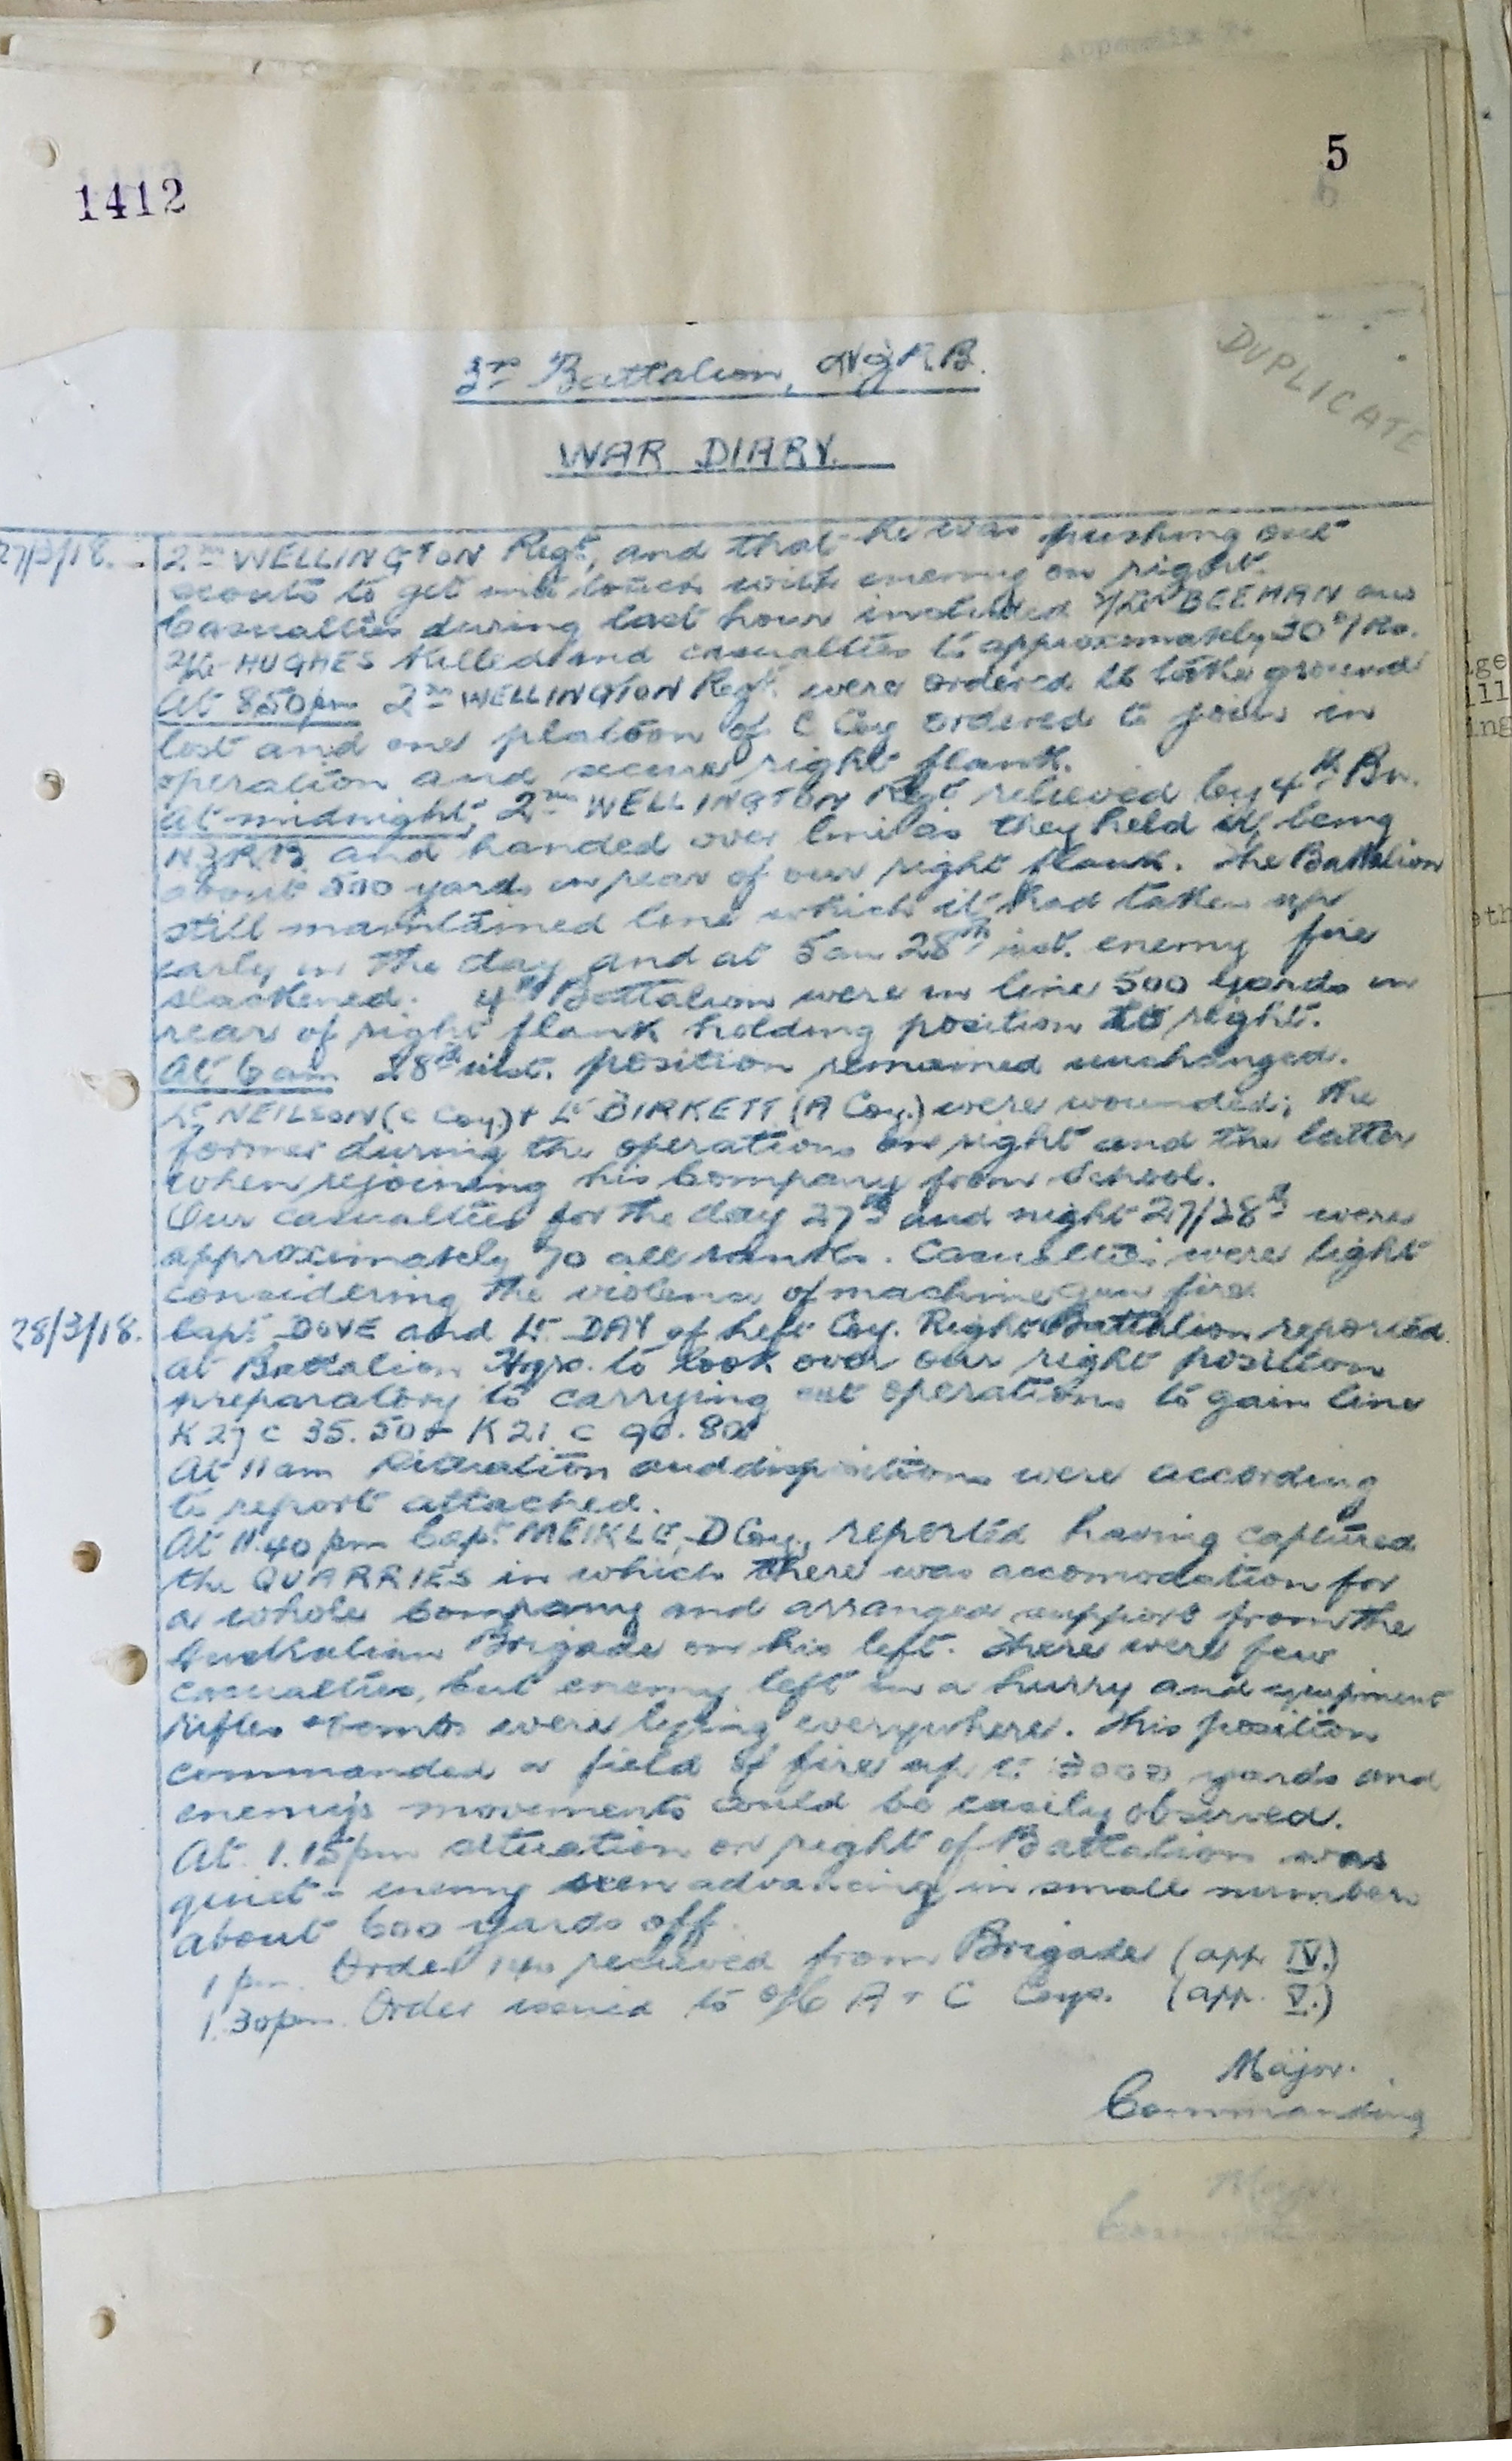 1412
5
DUPLICATE
3rd Battalion, N.Z.R.B.
WAR DIARY.
27/3/18. 2nd WELLINGTON Regt, and that he was pushing out
scouts to get into touch with enemy on right.
Casualties during last hour included 2/Lt BEEMAN and
2/Lt HUGHES killed and casualties to approximately 30 O/Rs.
At 8.50pm 2nd WELLINGTON Regt. were ordered to take ground
lost and one platoon of C Coy ordered to join in
operation and secure right flank.
At midnight, 2nd WELLINGTON Regt relieved by 4th Bn.
N.Z.R.B. and handed over line as they held it, being
about 500 yards in rear of our right flank. The Battalion
still maintained line which it had taken up
early in the day and at 5am 28th inst. enemy fire
slackened. 4th Battalion were in line 500 yards in
rear of right flank holding position to right.
At 6 am 28th inst. position remained unchanged.
Lt NEILSON (C Coy.) + Lt BIRKETT (A Coy.) were wounded; the
former during the operations on right and the latter
when rejoining his Company from School.
Our casualties for the day 27th and night 27/28th were
approximately 70 all ranks. Casualties were light
considering the violence of machine gun fire
28/3/18. Capt. DOVE and Lt. DAY of Left Coy. Right Battalion reported
at Battalion Hqrs. to look over our right position
preparatory to carrying out operations to gain line
K 27 c 35.50 + K 21. c 90.80
At 11 am situation and dispositions were according
to report attached.
At 11.40 pm Capt. MEIKLE, D Coy., reported having captured
the QUARRIES in which there was accomodation for
a whole company and arranged support from the
Australian Brigade on his left. There were few
casualties, but enemy left in a hurry and equipment
rifles + bombs were lying everywhere. This position
commanded a field of fire up to yards and
enemy's movements could be easily observed.
At 1.15pm situation on right of Battalion was
quiet - enemy seen advancing in small numbers
about 600 yards off.
1 pm. Order received from Brigade (app. IV.)
1.30pm. Order issued to O/C A + C Coys. (app. V.)
Major.
Commanding